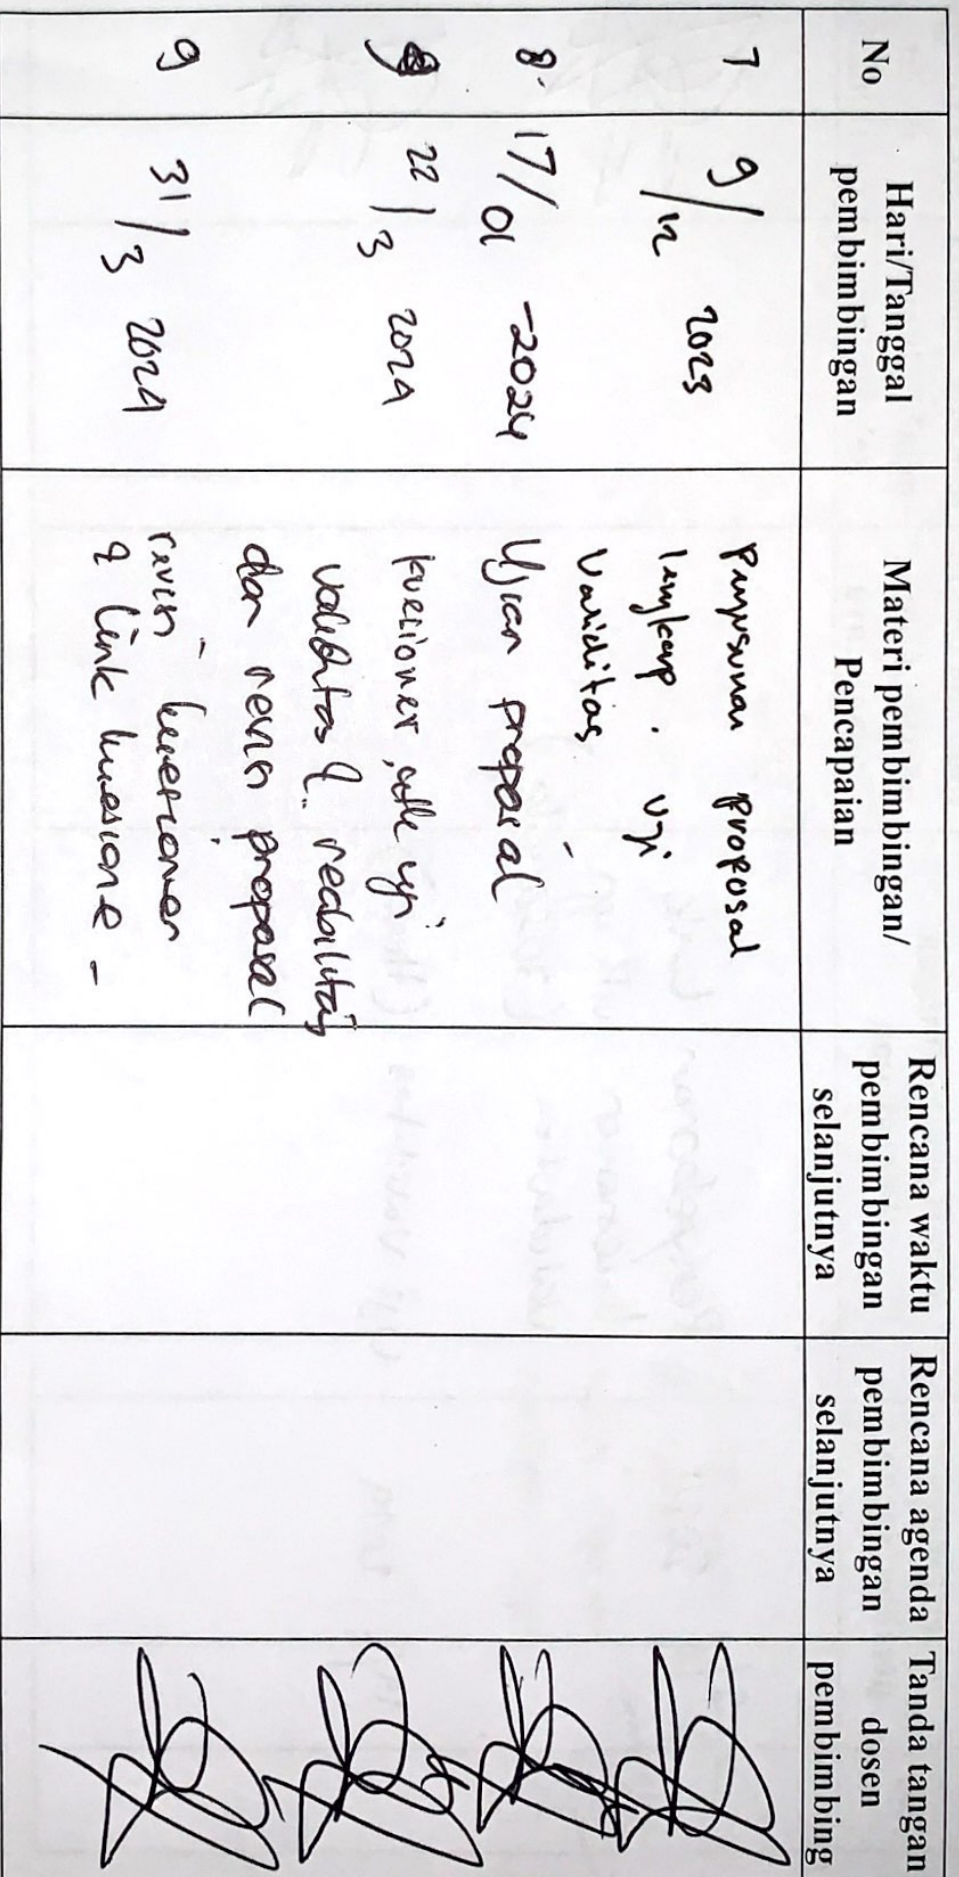 No
Hari/Tanggal
pembimbingan
Materi pembimbingan/
Pencapaian
Rencana waktu
pembimbingan
selanjutnya
Rencana agenda
pembimbingan
selanjutnya
Tanda tangan
dosen
pembimbing
7
9/12 2023
Penyusunan proposal
lengkap. Uji
Validitas
8.
17/01 -2024
Ujian proposal
9
22/3 2024
kuesioner,
validitas & reabilitas
dan revisi proposal
9
31/3 2024
revisi kuesioner
& link